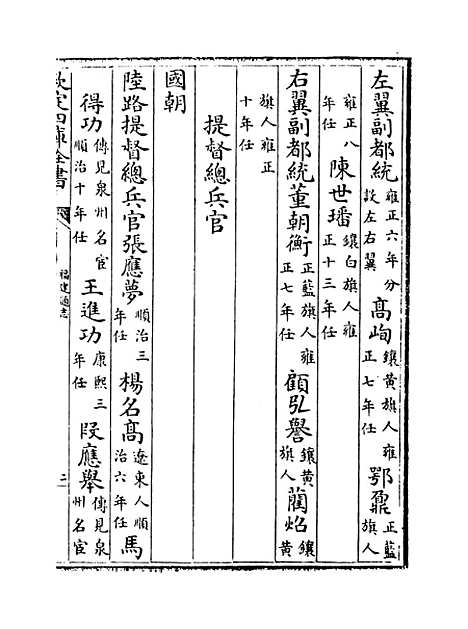 左翼副都統雍正六年分設左右翼 高峋鑲黃旗人雍正七年任 鄂鼐正藍旗人
雍正八年任 陳世璠鑲白旗人雍正十三年任
右翼副都統董朝衡正藍旗人雍正七年任 顧弘譽鑲黃旗人 藺焰鑲黃
旗人雍正十年任
提督總兵官
國朝
陸路提督總兵官張應夢順治三年任 楊名高遼東人順治六年任 馬
得功傳見泉州名宦順治十年任 王進功康熙三年任 段應舉傳見泉州名宦
欽定四庫全書
福建通志